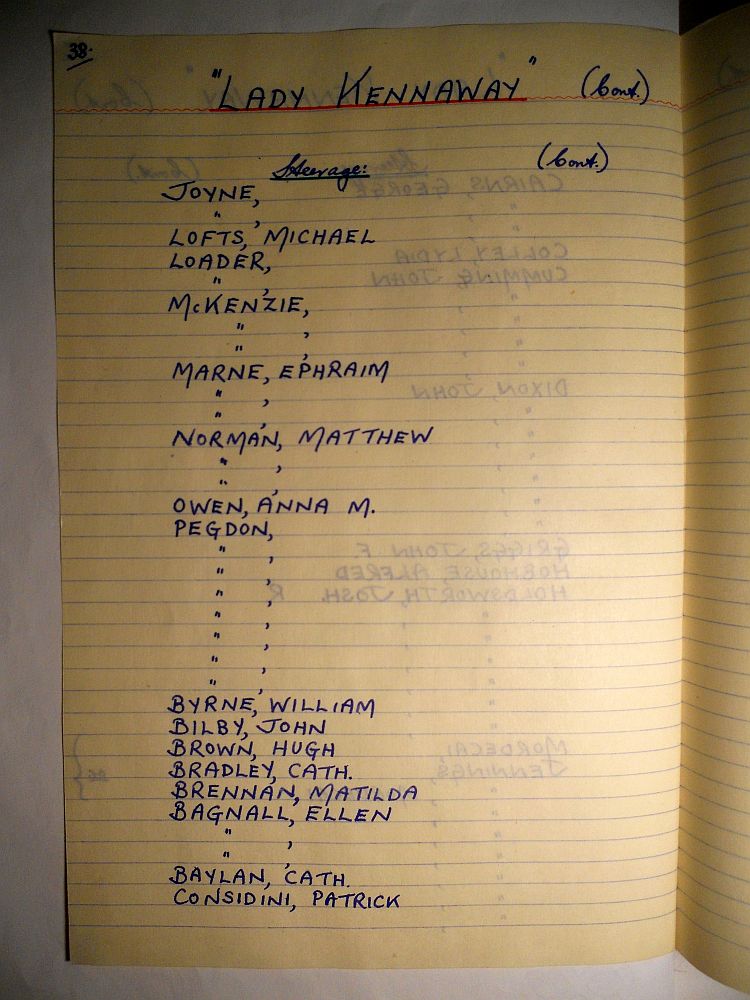 38.
"LADY KENNAWAY" (Cont.)
Steerage: (Cont.)
JOYNE,
" ,
LOFTS, MICHAEL
LOADER,
" ,
McKENZIE,
" ,
" ,
MARNE, EPHRAIM
" ,
" ,
NORMAN, MATTHEW
" ,
" ,
OWEN, ANNA M.
PEGDON,
" ,
" ,
" ,
" ,
" ,
" ,
" ,
BYRNE, WILLIAM
BILBY, JOHN
BROWN, HUGH
BRADLEY, CATH.
BRENNAN, MATILDA
BAGNALL, ELLEN
" ,
" ,
BAYLAN, CATH.
CONSIDINI, PATRICK